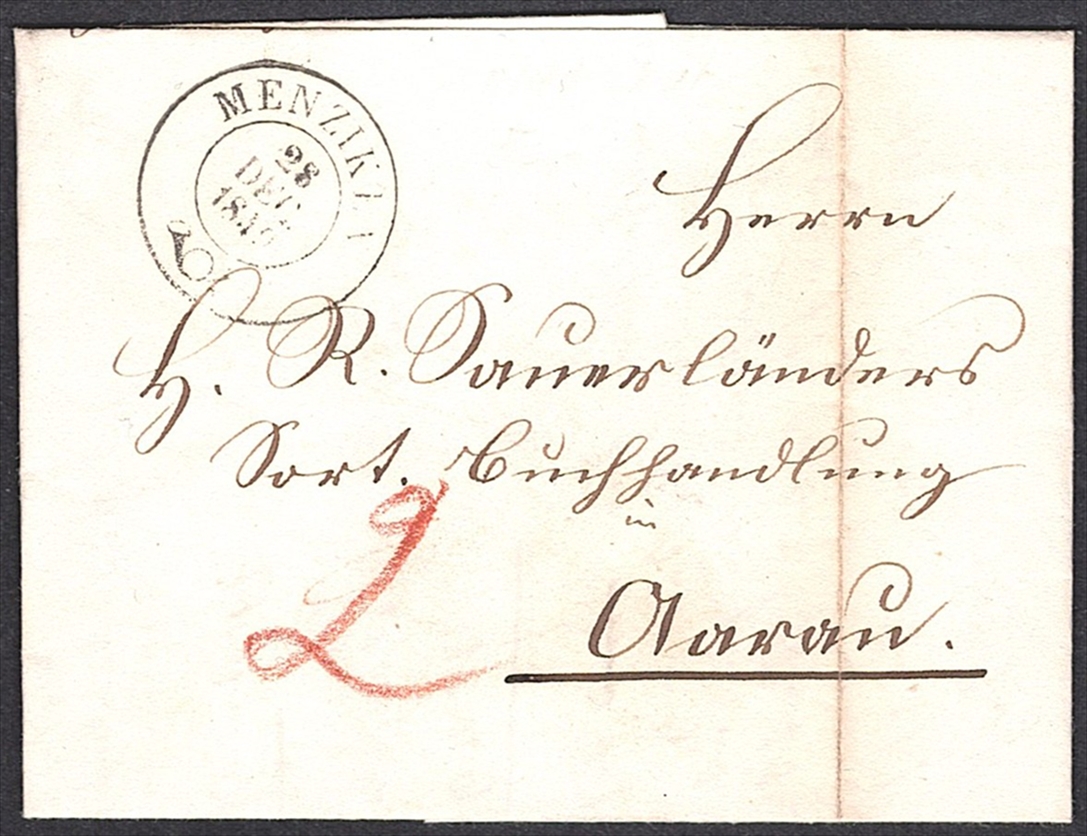 MENZIKEN
28
DEC
Herrn
H. R. Sauerländers
Sort. Buchhandlung
in
Aarau.
2